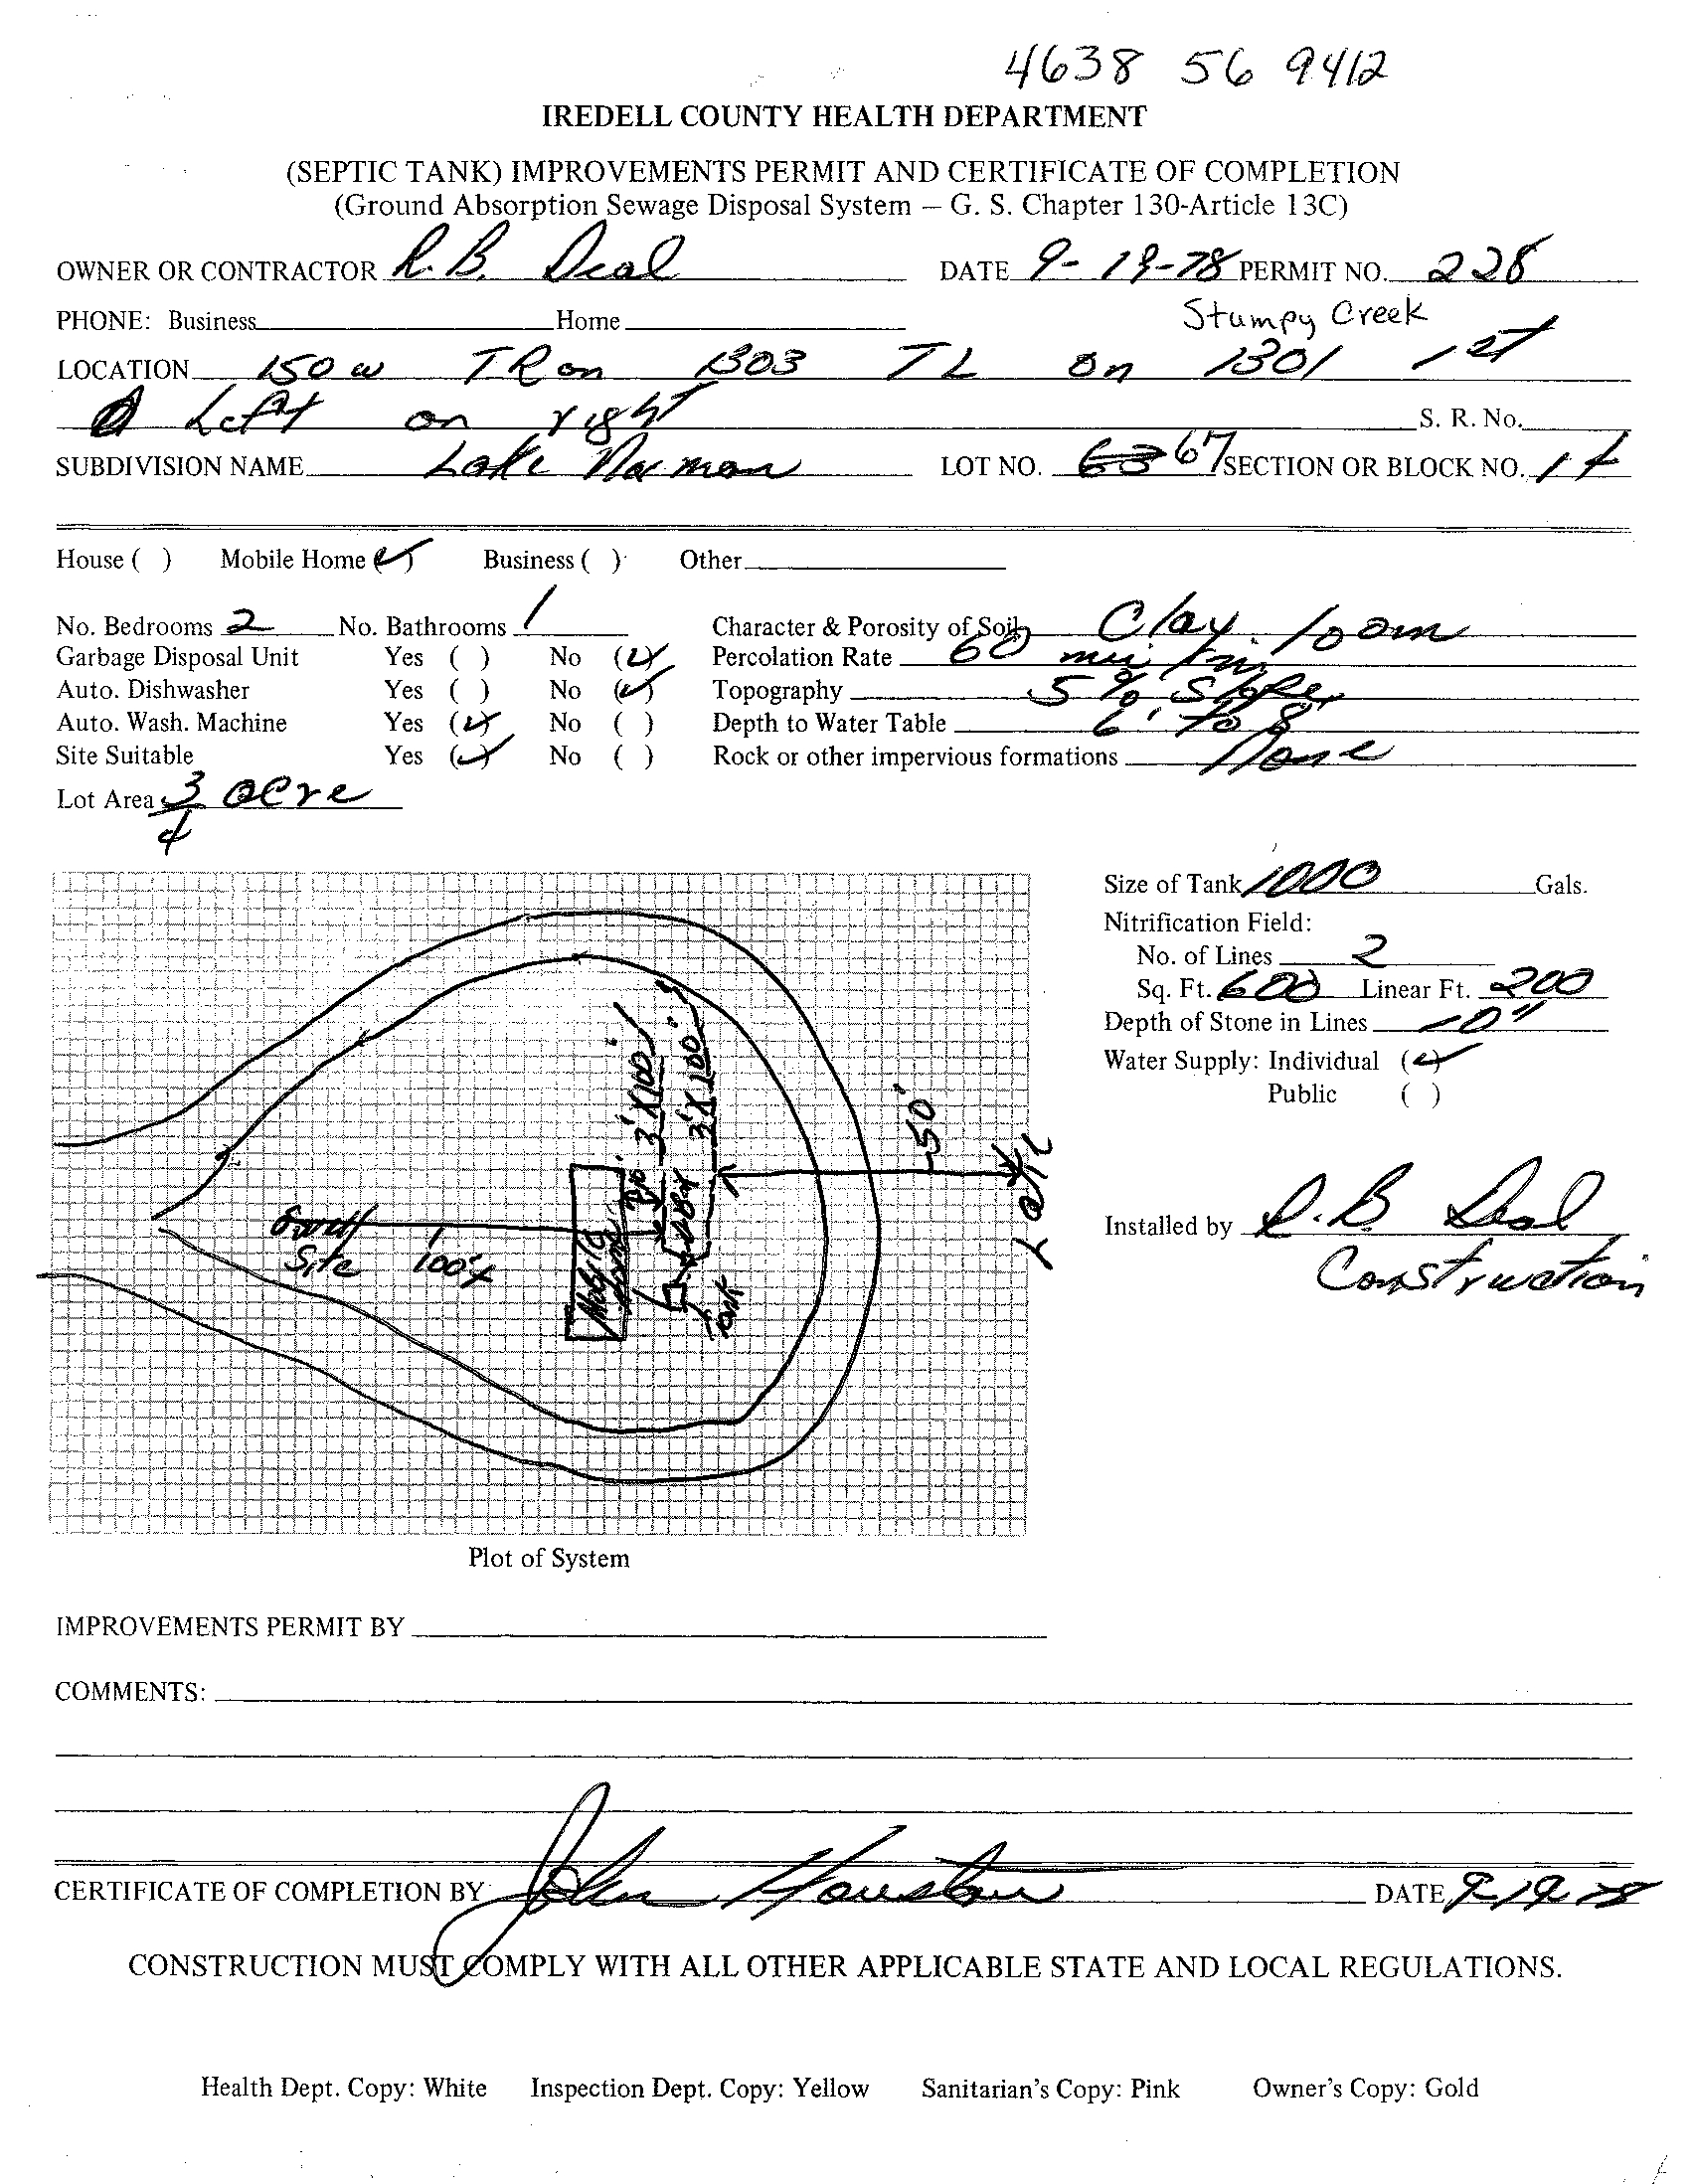 4638 56 9412
IREDELL COUNTY HEALTH DEPARTMENT
(SEPTIC TANK) IMPROVEMENTS PERMIT AND CERTIFICATE OF COMPLETION
(Ground Absorption Sewage Disposal System – G. S. Chapter 130-Article 13C)
OWNER OR CONTRACTOR R. B. Deal DATE 9-19-78 PERMIT NO. 228
PHONE: Business Home Stumpy Creek
LOCATION 150 W T.R on 1303 T L on 1301 1st
Left on right S. R. No.
SUBDIVISION NAME Lake Norman LOT NO. 67 SECTION OR BLOCK NO.
House ( ) Mobile Home (✓) Business ( ) Other
No. Bedrooms 2 No. Bathrooms 1 Character & Porosity of Soil Clay loam
Garbage Disposal Unit Yes ( ) No (✓) Percolation Rate 60 min/in.
Auto. Dishwasher Yes ( ) No (✓) Topography 5% Slope
Auto. Wash. Machine Yes (✓) No ( ) Depth to Water Table 6' to 8'
Site Suitable Yes (✓) No ( ) Rock or other impervious formations None
Lot Area 3/4 acre
Size of Tank 1000 Gals.
Nitrification Field:
No. of Lines 2
Sq. Ft. 600 Linear Ft. 200
Depth of Stone in Lines 10"
Water Supply: Individual (✓)
Public ( )
3' X 100'
3' X 100'
50'
Lake
Site 100'
Mobile Home
Tank
Installed by R. B. Deal
Construction
Plot of System
IMPROVEMENTS PERMIT BY
COMMENTS:
CERTIFICATE OF COMPLETION BY John Houston DATE 9-19-78
CONSTRUCTION MUST COMPLY WITH ALL OTHER APPLICABLE STATE AND LOCAL REGULATIONS.
Health Dept. Copy: White Inspection Dept. Copy: Yellow Sanitarian's Copy: Pink Owner's Copy: Gold